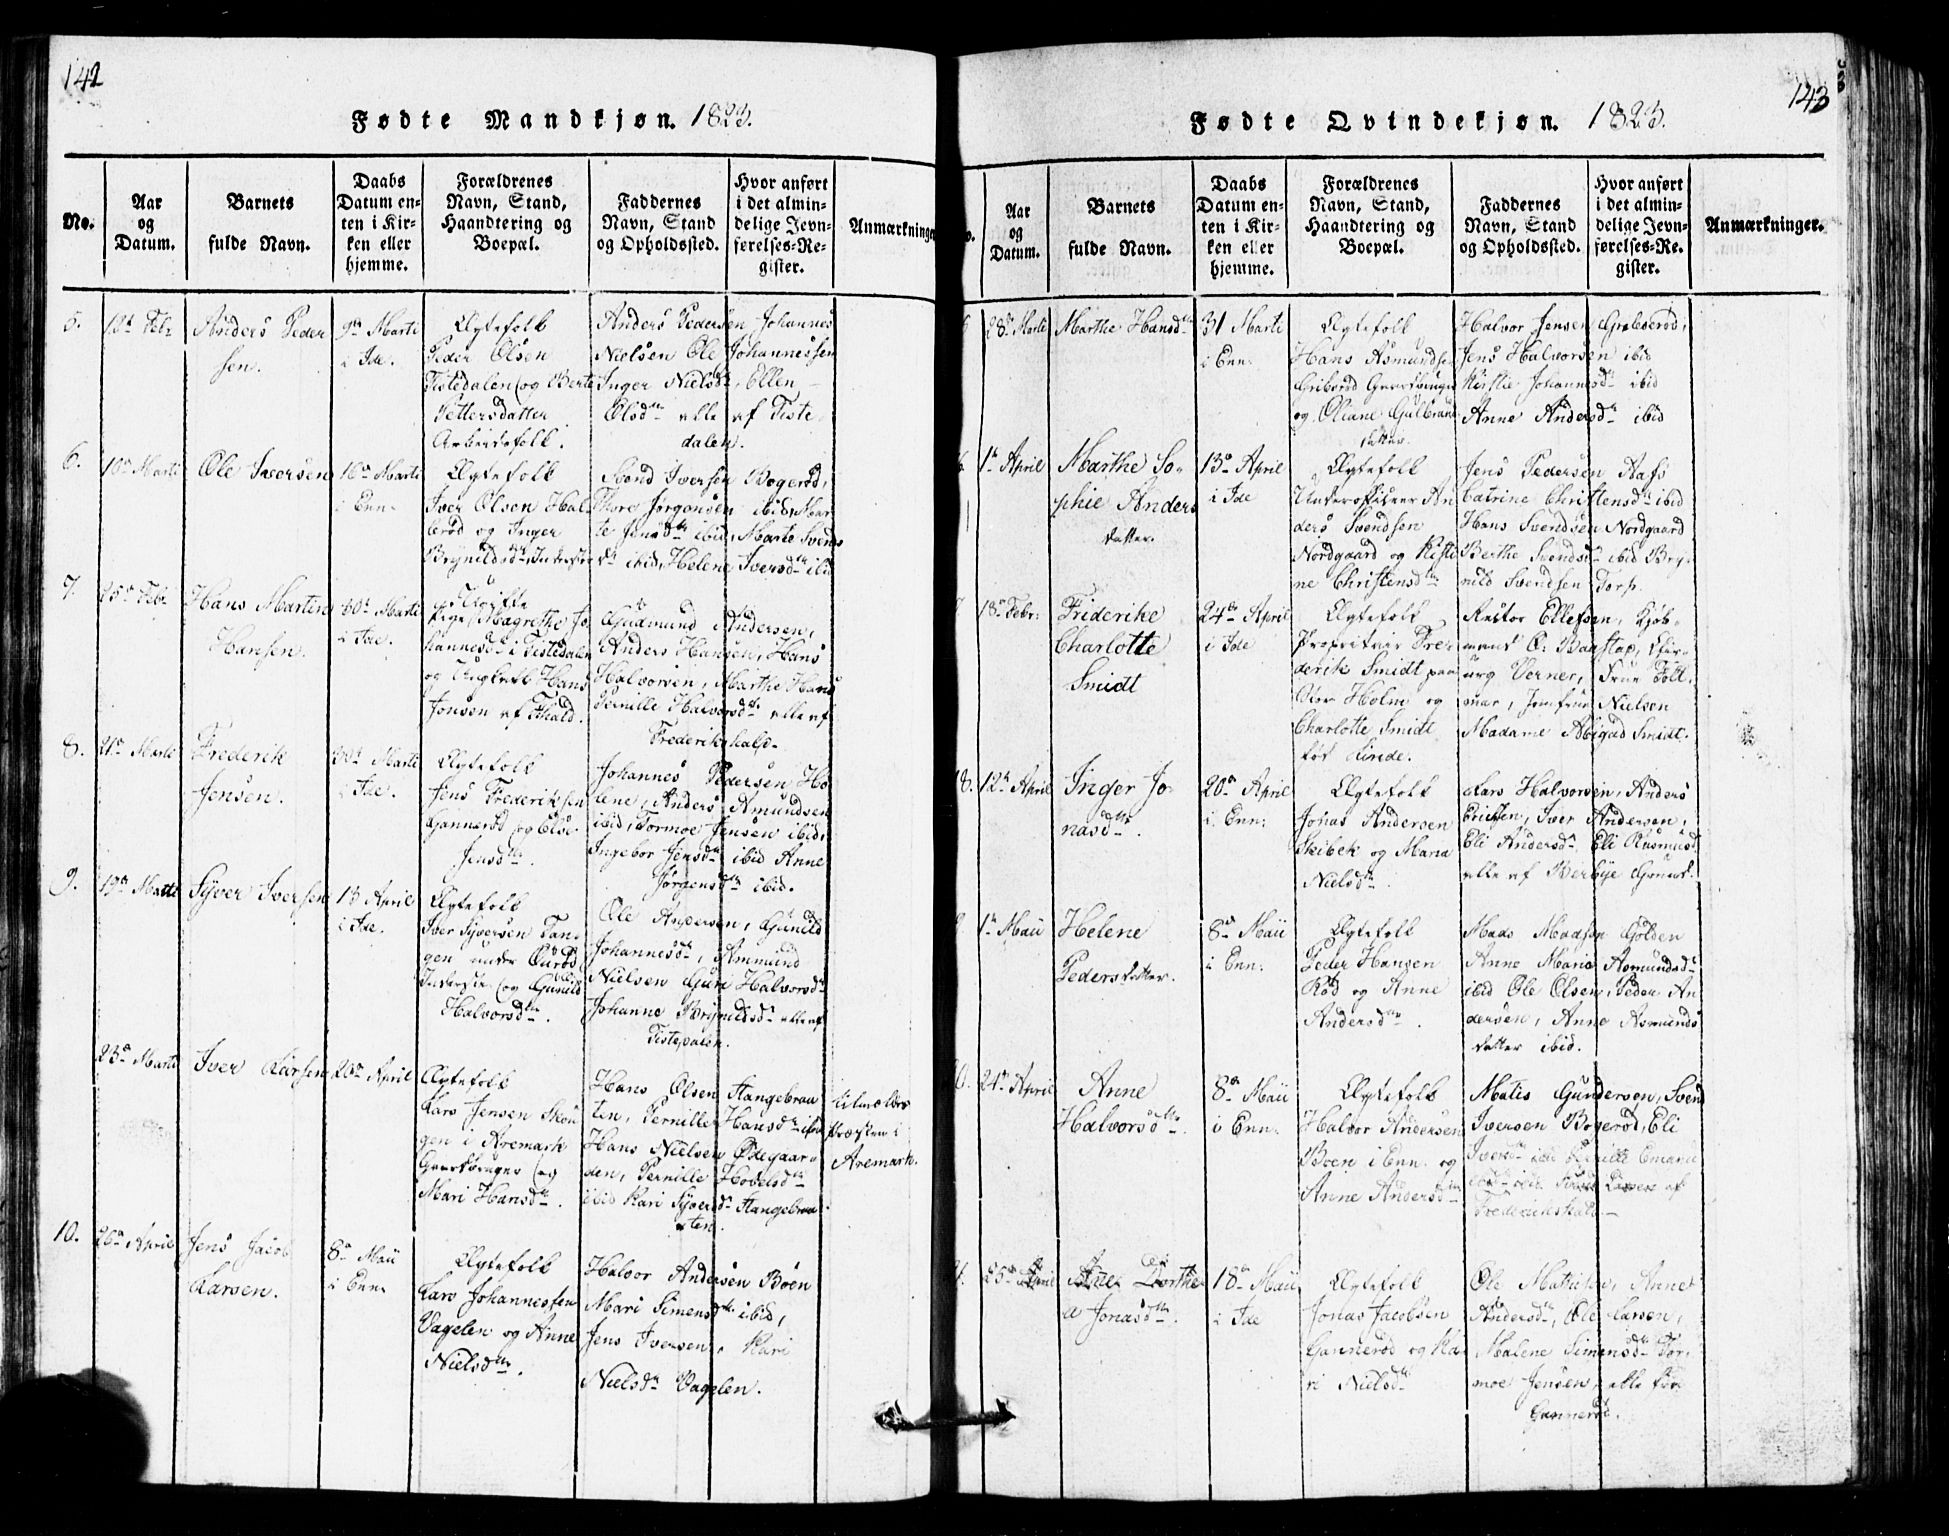 142
Fødte Mandkjøn. 1823.
No.
Aar
og
Datum.
Barnets
fulde Navn.
Daabs
Datum en-
ten i Kir-
ken eller
hjemme.
Forældrenes
Navn, Stand,
Haandtering og
Boepæl.
Faddernes
Navn, Stand
og Opholdssted.
Hvor anført
i det almin-
delige Jevn-
førelses-Re-
gister.
Anmærkninger
5.
Febr
Anders Peder
sen.
9de Marti
i Ide.
Ægtefolk
Peder Olsen
Tistedalen og Berte
Pettersdatter
Arbeidsfolk.
Anders Pedersen Johannes
Nielsen Ole Johannessen
Inger Nielsdtr, Ellen
Olsdtr alle af Tiste
dalen.
6.
10de Marti
Ole Iversen
16de Marti
i Enn.
Ægtefolk
Iver Olsen
og Inger
Brynildsdtr
Svend Iversen Bøgerød,
Thore Jørgensen ibid, Mar
te Jensdtr ibid, Marte Svends
dtr ibid, Helene Iversdtr ibid
7.
25de Febr
Hans Martin
Hansen.
30te Marti
i Ide.
Ugifte
Pige Magrethe Jo
hannesdtr i Tistedalen
og Ungkarl Hans
Jonsen af Fhald.
Gudmund Andersen,
Anders Hansen, Hans
Halvorsen, Marthe Hans
Pernille Halvorsdtr alle af
Frederikshald.
8.
21de Marti
Frederik
Jensen.
30te Marti
i Ide.
Ægtefolk
Jens Frederiksen
Gannerød og Else
Jensdtr.
Johannes Pedersen Ho
lene, Anders Amundsen
ibid, Tormoe Jensen ibid,
Ingebor Jensdtr ibid Anne
Jørgensdtr ibid.
9.
19de Marti
Syver Iversen
13 April
i Ide.
Ægtefolk
Iver Syversen Tan
gen under
og Gunild
Halvorsdtr.
Ole Andersen, Gunild
Johannesdtr, Ammund
Nielsen Guri Halvorsdtr
Johanne Brynildsdtr alle af
Tistedalen.
23de Marti
Iver Larsen
20de April
Ægtefolk
Lars Jensen Skou
gen i Aremark
Gaardbruger og
Mari Hansdtr.
Hans Olsen Hangebraa
ten, Pernille Hansdtr ibid
Hans Nielsen Ødegaar
den, Pernille Hovelsdtr
ibid Kari Syversdtr Hangebraa
ten.
tilmeldes
Præsten i
Aremark.
10.
26de April
Jens Jacob
Larsen.
8de Maii
i Enn.
Ægtefolk
Lars Johannessen
Vagelen og Anne
Nielsdtr.
Halvor Andersen Boen
Mari Simensdtr ibid,
Jens Iversen, Kari
Nielsdtr Vagelen.
143
Fødte Qvindekjøn. 1823.
Aar
og
Datum.
Barnets
fulde Navn.
Daabs
Datum en-
ten i Kir-
ken eller
hjemme.
Forældrenes
Navn, Stand,
Haandtering og
Boepæl.
Faddernes
Navn, Stand
og Opholdssted.
Hvor anført
i det almin-
delige Jevn-
førelses-Re-
gister.
Anmærkninger.
28de Marti
Marthe Hansdtr
31 Marti
i Enn.
Ægtefolk
Hans Asmundsen
Griberød Gaardbruger
og Oliane Gulbrand
datter.
Halvor Jensen
Jens Halvorsen ibid
Kirstie Johannesdtr ibid
Anne Andersdtr ibid
1te April
Marthe So-
phie Anders
datter.
13de April
i Ide
Ægtefolk
Underofficeer An
ders Svendsen
Nordgaard og Kisti
ne Christensdtr
Jens Pedersen
Catrine Christensdtr ibid
Hans Svendsen Nordgaard
Berthe Svendsdtr ibid Bry-
nild Svendsen Torp.
18de Febr:
Friderike
Charlotte
Smidt
24de April
i Ide
Ægtefolk
Proprietair Fre-
derik Smidt paa
Holm og
Charlotte Smidt
fød Linde.
Pastor Ellefsen, Kjøb-
mand
urg Verner, Frue
Jomfrue Nielsen
Madame Abigael Smidt.
8.
12te April
Inger Jo-
nasdtr.
20de April
i Enn:
Ægtefolk
Jonas Andersen
Skibek og Maria
Nielsdtr.
Lars Halvorsen, Anders
Erichsen, Iver Andersen,
Eli Andersdtr, Eli Rasmusd
alle af Berbye
1te Maii
Helene
Pedersdatter.
8de Maii
i Enn:
Ægtefolk
Peder Hansen
Rød og Anne
Andersdtr.
Mads Madsen Golden
Anne Marie Asmundsdtr
ibid Ole Olsen, Peder An
dersen, Anne Asmunds
datter ibid.
24de April
Anne
Halvorsdtr.
8de Maii
i Enn.
Ægtefolk
Halvor Andersen
Boen i Enn. og
Anne Andersdtr
Matis Gundersen, Svend
Iversen Bøgerød, Eli
Frederikshald.
25de April
Dorthe
a Jonasdtr.
18de Maii
i Ide
Ægtefolk
Jonas Jacobsen
Gannerød og Ka
ri Nielsdtr
Ole Mathisen, Anne
Andersdtr, Ole Larsen,
Malene Simensdtr Tor
moe Jensen, alle fra
Gannerød.